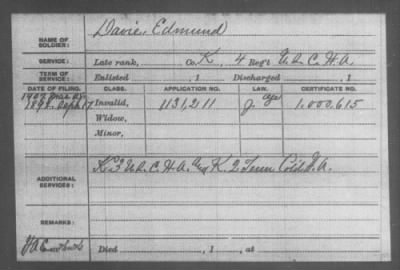 NAME OF SOLDIER: Davie, Edmund
SERVICE: Late rank, Co. K, 4 Reg't U.S.C.H.A.
TERM OF SERVICE: Enlisted , 1 Discharged , 1
DATE OF FILING. CLASS. APPLICATION NO. LAW. CERTIFICATE NO.
1907
1892. Sept 17 Invalid, 1131,211 J. 1,000,615
Widow,
Minor,
ADDITIONAL SERVICES: K. 3 U.S.C.H.A. K. 2 Tenn Cold. H.A.
REMARKS:
Died , 1 , at